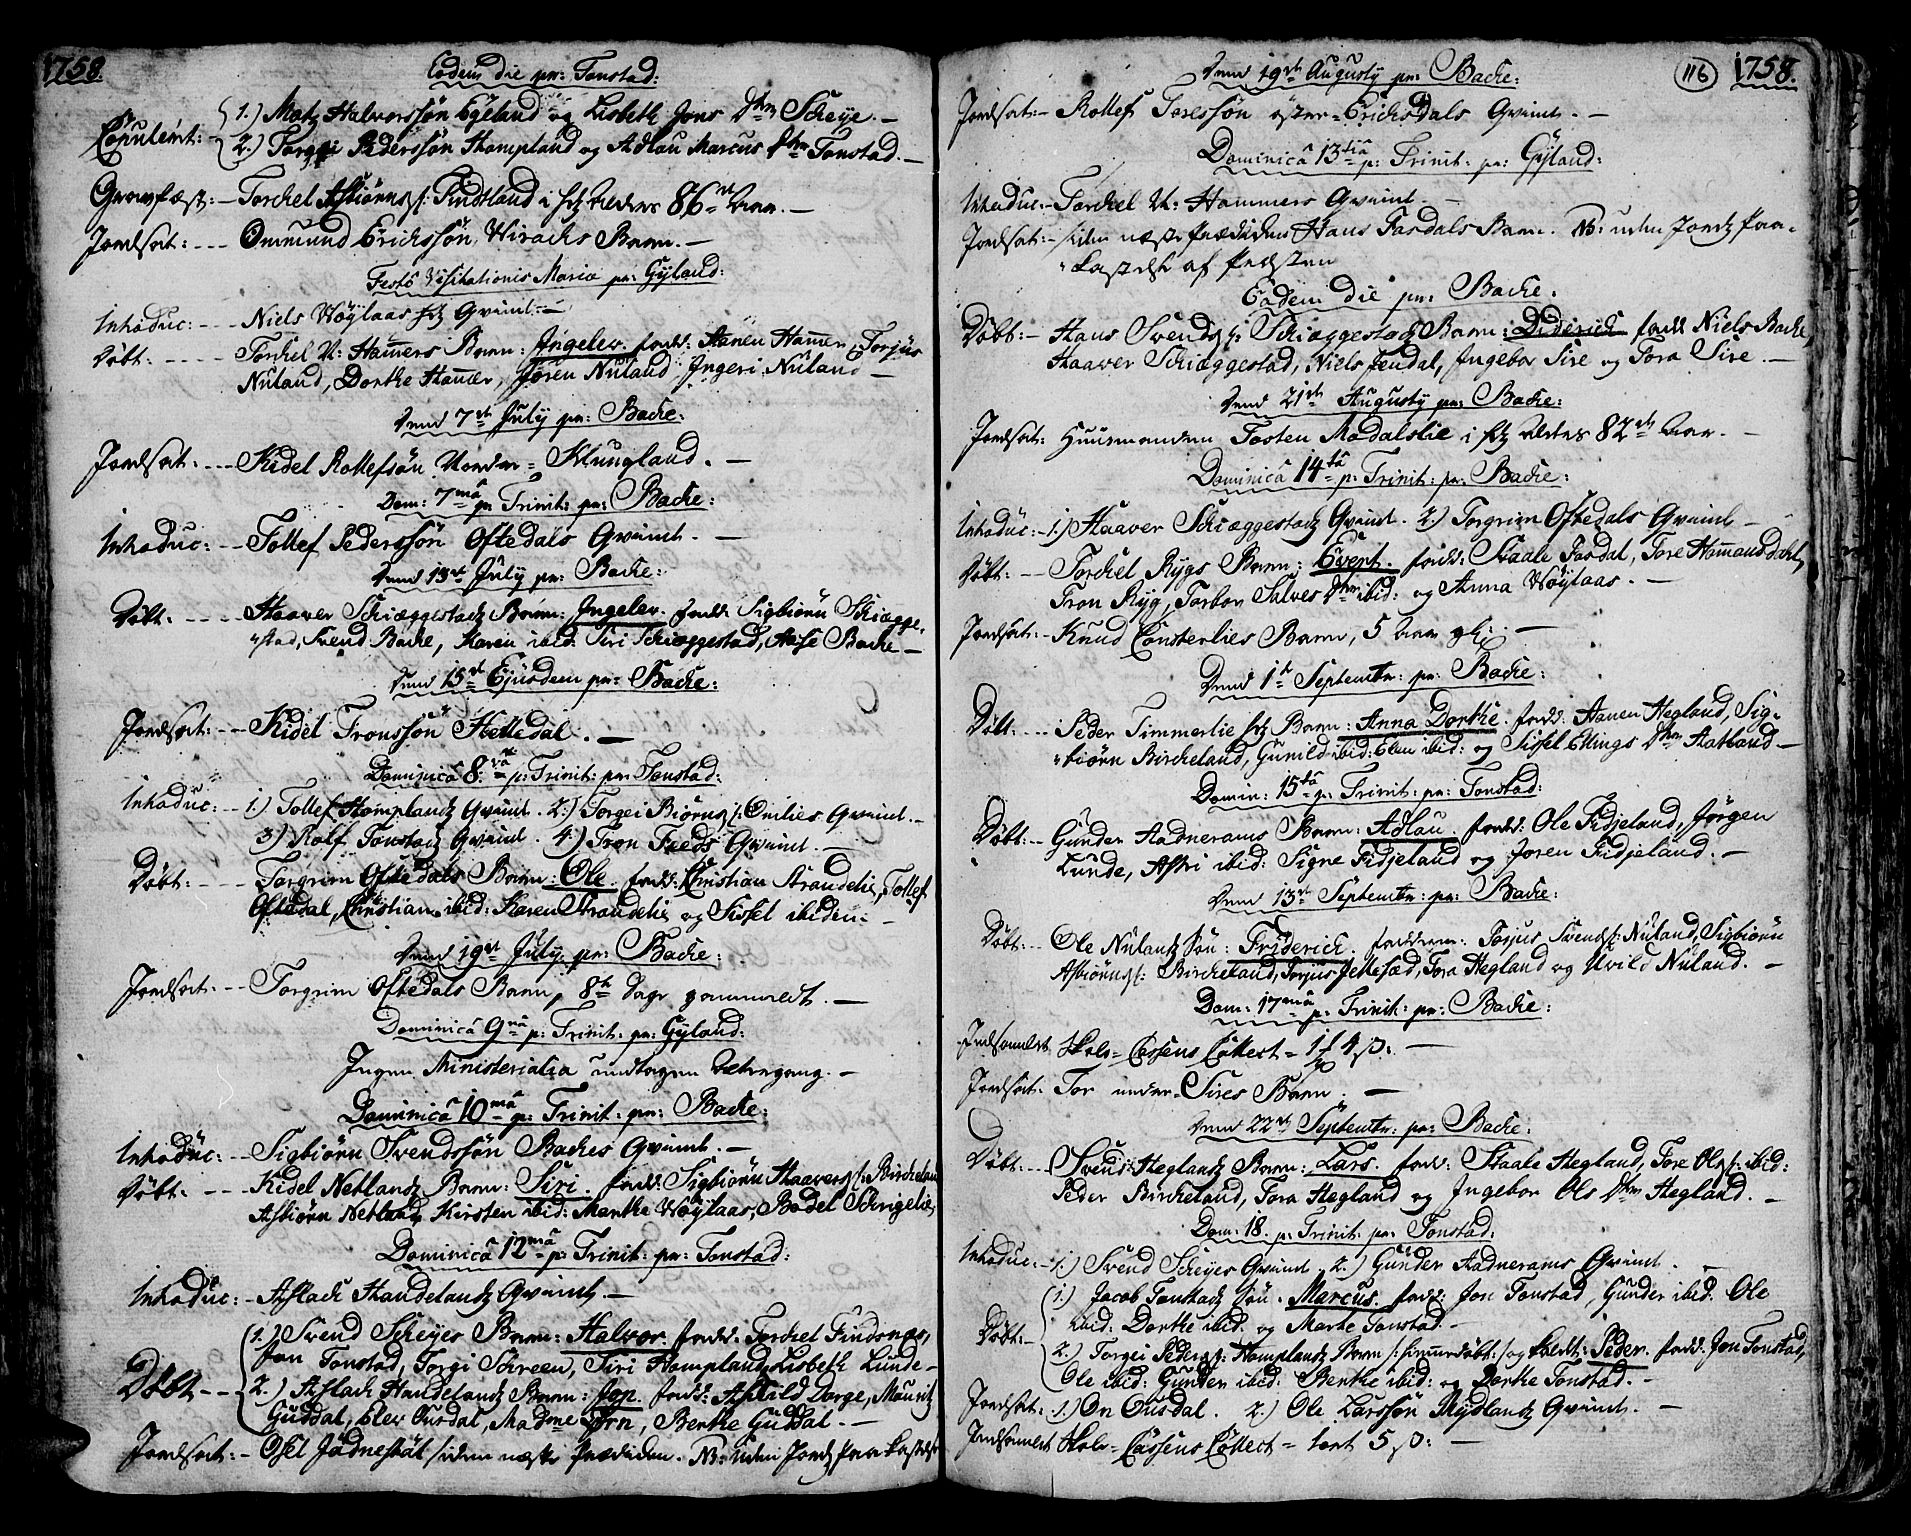 1758.
Eodem die pr: Tonstad:
Copulert: 1.) Matz Halvorssøn Egeland og Lisbeth Jons Dtr Scheye. —
2.) Torgei Pederssøn Hompland og Adlau Marcus Dtr Tonstad. —
Gravfæst: — Torchel Asbiørns: Findtland i sin Alders 86de Aar. —
Jordsat: --- Ommund Erichssøn Wirachs Barn. —
Festô Visitationis Mariæ pr: Gyland:
Introduc: --- Niels Høylaas Qvind. —
Døbt. ---- Torchel N: Hamers Barn: Ingeler. fadd: Aanen Hamer, Torjus
Nuland, Dorthe Hamer, Jøren Nuland Ingeri Nuland —
Dend 7de July pr: Backe:
Jordsat: --- Kidel Rollefsøn Norder = Klungland. —
Dom: 7mâ p: Trinit: pr: Backe:
Introduc: -- Tollef Pederssøn Oftedals Qvind. —
Dend 13de July pr: Backe:
Døbt. ---- Haaver Schiæggestads Barn: Ingeler. fadd: Sigbiørn Schiægge-
stad, Svend Backe, Karen ibid: Siri Schiæggestad, Aase Backe —
Dend 15de Ejusdem pr: Backe:
Jordsat: --- Kidel Tronssøn Helledal. —
Dominicâ 8vâ p: Trinit: pr: Tonstad:
Introduc: -- 1.) Tollef Homplands Qvind. 2.) Torgei Biørns: Omlies Qvind. —
3.) Rolf Tonstads Qvind. 4.) Tron Freds Qvind. —
Døbt: ---- Torgrim Oftedals Barn: Ole. fadd: Christian Strandelie, Tollef
Oftedal, Christian ibid: Karen Strandelie og Sissel ibidem —
Dend 19de July pr: Backe:
Jordsat: --- Torgrim Oftedals Barn, 8te dage gammelt. —
Dominicâ 9nâ p: Trinit: pr: Gyland:
Ingen Ministerialia undtagen Altergang. —
Dominicâ 10mâ p: Trinit: pr: Backe:
Introduc: — Sigbiørn Svendssøn Backes Qvind. —
Døbt: --- Kidel Netlands Barn: Siri. fadd: Sigbiørn Haavers: Birckeland
Asbiørn Netland, Kirsten ibid: Marthe Høylaas, Bodel Schrigelie,
Dominicâ 12mâ p: Trinit: pr: Tonstad:
Introduc: — Aslach Haudelands Qvind. —
Døbt -- 1.) Svend Scheyes Barn: Halvor. fadd: Torchel Findsnæs,
Jon Tonstad, Torgi Schreen, Siri Hompland, Lisbeth Lunde —
2.) Aslach Haudelands Barn: Jon. fadd: Askild Dorge, Mauritz
Guddal, Elev Ousdal, Madme Ørn, Berthe Guddal. —
Jordsat: — Osel Jødnestøl siden næste Prædiken. NB: uden Jords Paakastelse

116
1758.
Dend 19de Augusty pr: Backe:
Jordsat: — Rollefs Toressøn øster = Erichsdals Qvind. —
Dominicâ 13tiâ p: Trinit: pr: Gyland:
Introduc: — Torchel N: Hammers Qvind. —
Jordsat: — siden næste Prædiken Hans Fasdals Barn. NB: uden Jords Paa-
kastelse af Præsten
Eodem die pr: Backe.
Døbt: — Hans Svends: Schiæggestads Barn: Diderich fadd: Niels Backe,
Haaver Schiæggestad, Niels Jendal, Ingebor Sire og Tora Sire. —
Dend 21de Augusty pr: Backe:
Jordsat: Huusmanden Tosten Modalslie i sin Alders 82de Aar. —
Dominicâ 14tâ p: Trinit: pr: Backe:
Introduc: — 1.) Haaver Schiæggestads Qvind. 2.) Torgrim Oftedals Qvind —
Døbt: -- Torchel Rygs Barn: Evert. fadd: Staale Fasdal, Tore Hamansdahl,
Tron Ryg, Torbor Salves Dtr ibid: og Anna Høylaas. —
Jordsat: — Knud Consterlies Barn, 5 Aar gl: —
Dend 1te Septembr: pr: Backe:
Døbt: --- Peder Timmerlie Barn: Anna Dorthe. fadd: Aanen Hegland, Sig-
biørn Birckeland, Gunild ibid: Elen ibid: og Sissel Ellings Dtr Aatland —
Domin: 15tâ p: Trinit: pr: Tonstad:
Døbt: — Gunder Aadnerams Barn: Adlau. fadd: Ole Fidjeland, Jørgen
Lunde, Astri ibid: Signe Fidjeland og Joren Fidjeland. —
Dend 13de Septembr: pr: Backe:
Døbt: -- Ole Nulands Søn: Friderich. fadderne: Torjus Svends: Nuland, Sigbiørn
Asbiørns: Birckeland, Torjus Jellesæd, Tora Hegland og Uvild Nuland. —
Dom: 17mâ p: Trinit: pr: Backe:
Indsamlet Skole = Cassens Collect = 1 4 s. —
Jordsat: Tor under = Sires Barn. —
Dend 22de Septembr: pr: Backe:
Døbt: --- Svend Heglands Barn: Lars. fadd: Staale Hegland, Tore Ols: ibid:
Peder Birckeland, Tora Hegland og Ingebor Ols Dtr Hegland. —
Dom: 18. p: Trinit: pr: Tonstad:
Introduc: — 1.) Svend Scheyes Qvind 2.) Gunder Aadnerams Qvind. —
Døbt: — 1.) Jacob Tonstads Søn. Marcus. fadd: Jon Tonstad, Gunder ibid. Ole
ibid. Dorthe ibid. og Marte Tonstad. —
2.) Torgei Peders: Homplands Barn /: hiemedøbt :/ og kaldt: Peder. fadd: Jon Tonstad,
Ole ibid: Gunder ibid: Berthe ibid: og Dorthe Tonstad. —
Jordsat: 1.) On Ousdal. 2.) Ole Larssøn Mydlands Qvind. —
Indsamlet Skole = Cassens Collect = 5 s: —